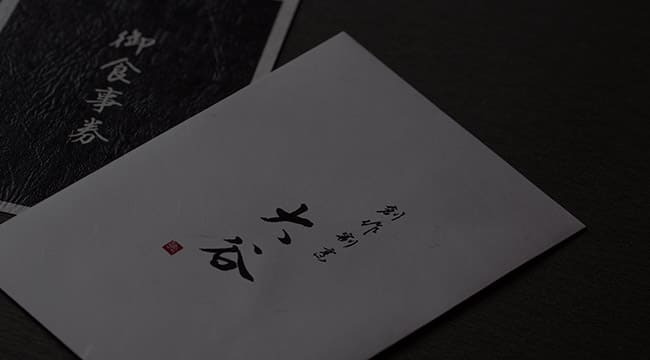 御食事券
創作割烹
六谷